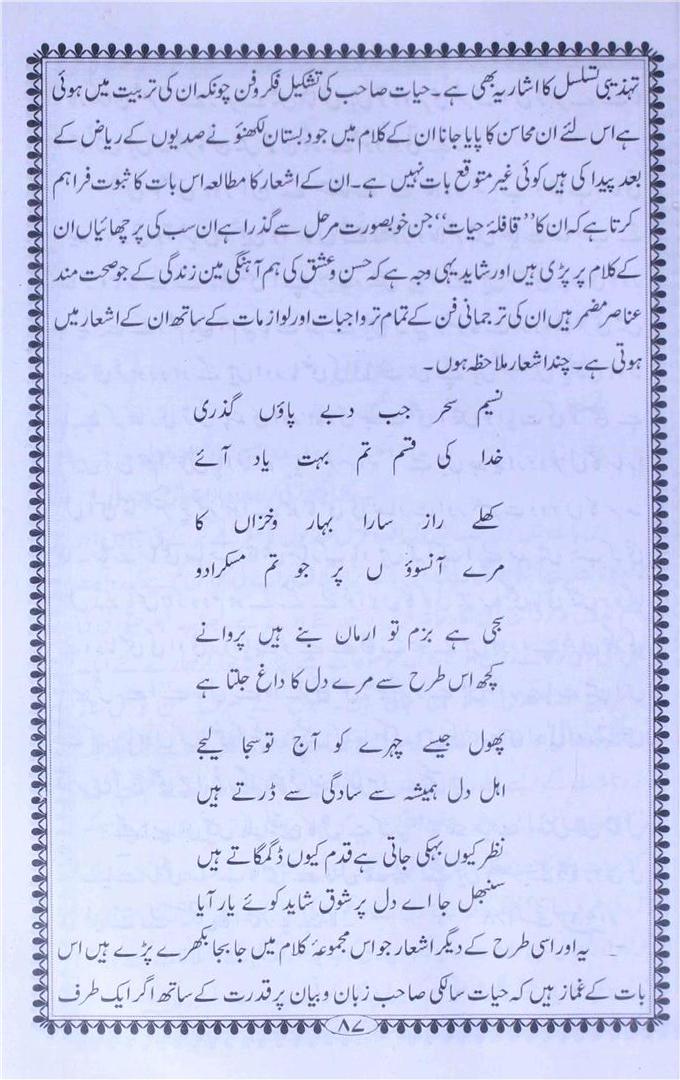 تہذیبی تسلسل کا اشاریہ بھی ہے۔ حیات صاحب کی تشکیل فکر و فن چونکہ ان کی تربیت میں ہوئی
ہے اس لئے ان محاسن کا پایا جانا ان کے کلام میں جو دبستان لکھنؤ نے صدیوں کے ریاض کے
بعد پیدا کی ہیں کوئی غیر متوقع بات نہیں ہے۔ ان کے اشعار کا مطالعہ اس بات کا ثبوت فراہم
کرتا ہے کہ ان کا ”قافلۂ حیات“ جن خوبصورت مرحل سے گذرا ہے ان سب کی پرچھائیاں ان
کے کلام پر پڑی ہیں اور شاید یہی وجہ ہے کہ حسن و عشق کی ہم آہنگی مین زندگی کے جو صحت مند
عناصر مضمر ہیں ان کی ترجمانی فن کے تمام تر واجبات اور لوازمات کے ساتھ ان کے اشعار میں
ہوتی ہے۔ چند اشعار ملاحظہ ہوں۔
نسیم سحر جب دبے پاؤں گذری
خدا کی قسم تم بہت یاد آئے
کھلے راز سارا بہار و خزاں کا
مرے آنسوؤ ں پر جو تم مسکرا دو
سجی ہے بزم تو ارماں بنے ہیں پروانے
کچھ اس طرح سے مرے دل کا داغ جلتا ہے
پھول جیسے چہرے کو آج تو سجا لیجے
اہل دل ہمیشہ سے سادگی سے ڈرتے ہیں
نظر کیوں بہکی جاتی ہے قدم کیوں ڈگمگاتے ہیں
سنبھل جا اے دل پر شوق شاید کوئے یار آیا
یہ اور اسی طرح کے دیگر اشعار جو اس مجموعۂ کلام میں جا بجا بکھرے پڑے ہیں اس
بات کے غماز ہیں کہ حیات سالکی صاحب زبان و بیان پر قدرت کے ساتھ اگر ایک طرف
۸۷